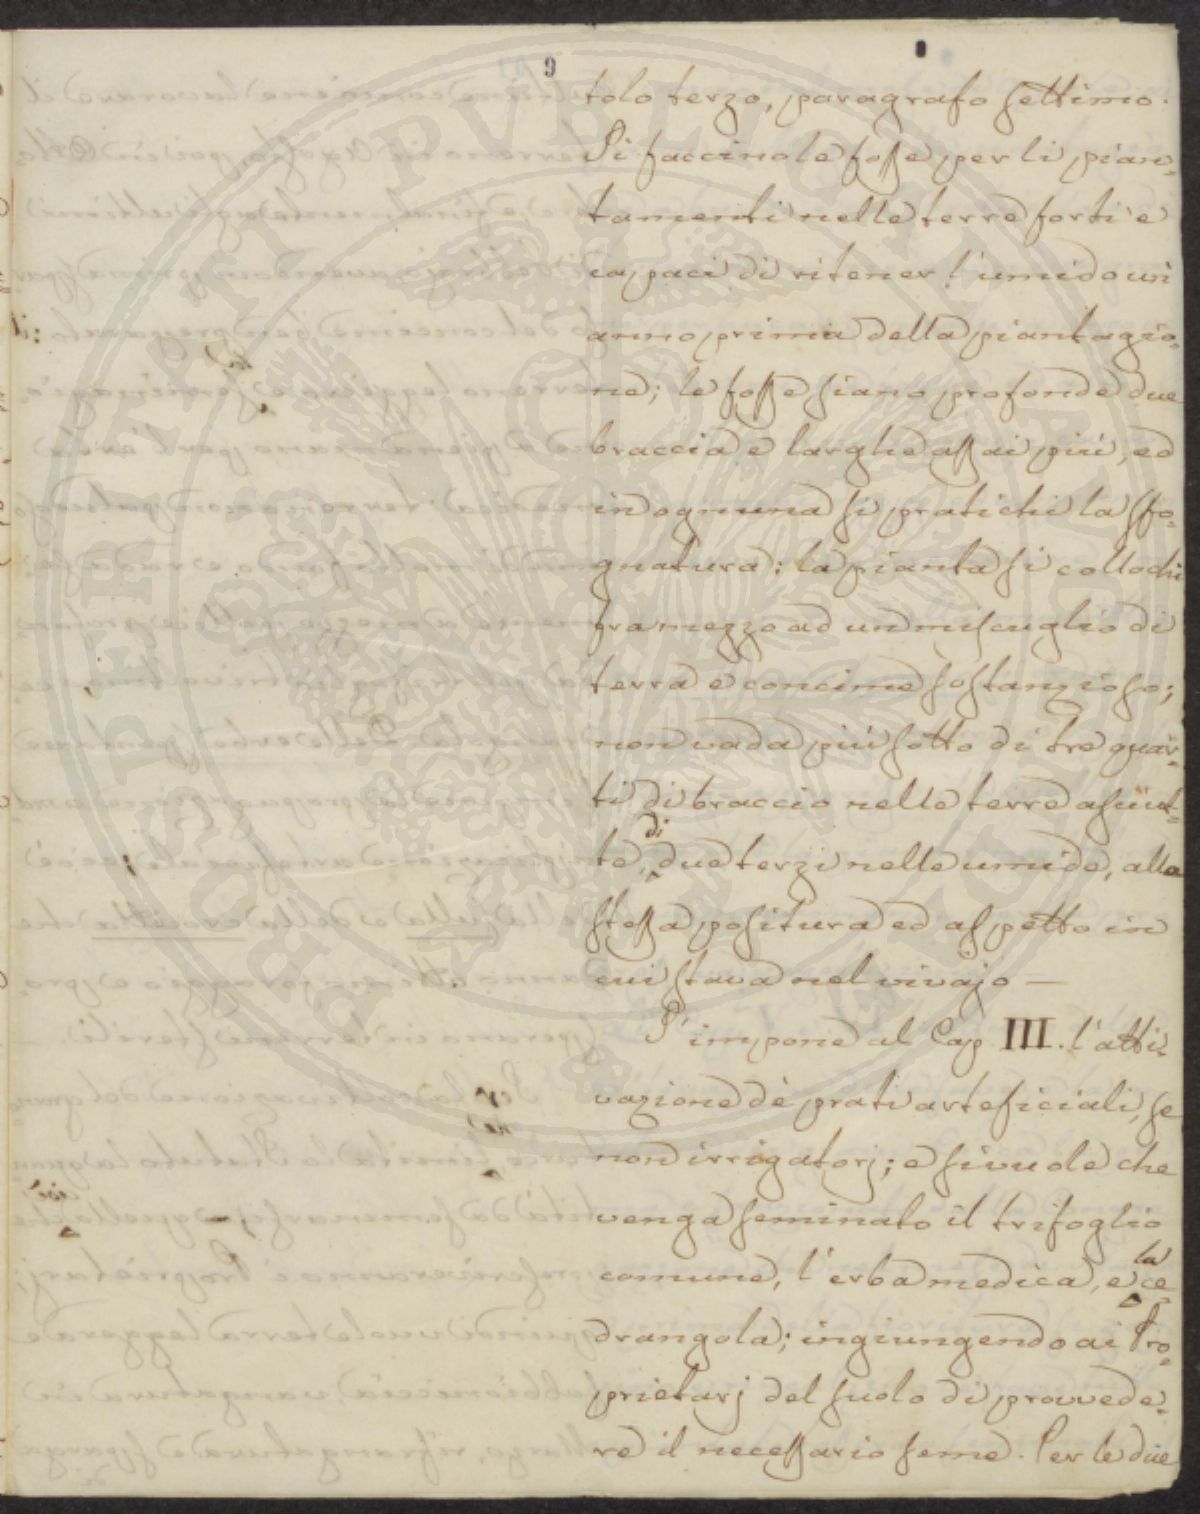 9
tolo terzo, paragrafo settimo.
Si faccino le fosse per li pian=
tamenti nelle terre forti e
capaci di ritener l'umido un
anno prima della piantagio=
ne; le fosse siano profonde due
braccia e larghe assai più, ed
in ognuna si pratichi la sfo=
gnatura; la pianta si collochi
framezzo ad un miscuglio di
terra e concime sostanzioso;
non vada più sotto di tre quar=
ti di braccio nelle terre asciut=
te, di due terzi nelle umide, alla
stessa positura ed aspetto in
cui stava nel vivajo —
S'impone al Cap III. l'atti=
vazione dè prati arteficiali, se
non irrigatorj; e si vuole che
venga seminato il trifoglio
comune, l'erba medica, e la ce=
drangola; ingiungendo ai Pro=
prietarj del suolo di provvede=
re il necessario seme. Per le due